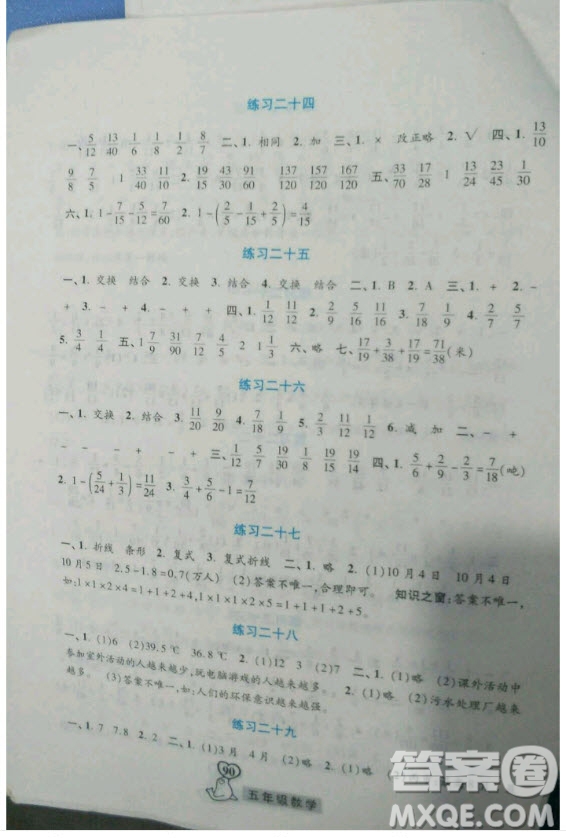 练习二十四
一、5/12 13/40 1/6 1/8 1/6 8/7 二、1. 相同 2. 加 三、1. × 改正略 2. √ 四、1. 13/10
9/8 7/5 1 33/40 11/10 2. 137/120 167/120 五、33/70 17/28 1 13/24 23/45 1/30
六、1. 1-7/15-5/12=7/60 2. 1-(2/5-1/15+2/5)=4/15
练习二十五
一、1. 交换 结合 2. 交换 3. 结合 4. 交换 结合 二、1. B 2. A 三、1. + 2. -
+ 3. + 4. - + + 四、1. 2. 7/18 1/9 4. 2/7 5/7
5. 3/4 1/4 五、1 7/9 31/90 7/12 2 1 1/3 六、略 七、17/19+3/38+17/19=71/38(米)
练习二十六
一、1. 交换 2. 结合 3. 11/20 9/20 4. 7/18 1/9 5. 6. 减 加 二、- +
- - + - + 三、1/12 5/7 19/15 19/14 四、1. 5/6+2/9-2/3=7/18(吨)
2. 1-(5/24+1/3)=11/24 3. 3/4+5/6-1=7/12
练习二十七
一、1. 折线 条形 2. 复式 3. 复式折线 二、1. 略 2. (1)10月4日 10月4日
10月5日 2.5-1.8=0.7(万人) (2)答案不唯一,合理即可。 知识之窗:答案不唯一,
如:1×1×2×4=1+1+2+4,1×1×1×2×5=1+1+1+2+5。
练习二十八
一、1. (1)6 (2)39.5℃ 2. (1)12 3 (2)7 二、1. (1)略 (2)课外活动中
参加室外活动的人越来越少,玩电脑游戏的人越来越多。 2. (1)略 (2)污水处理厂越来
越多。 (3)答案不唯一,如:人们的环保意识越来越强。
练习二十九
一、1. 7 7.8 2. 2 二、1. (1)3月 4月 (2)略 2. (1)略
90
五年级数学
答案圈
MXQE.COM